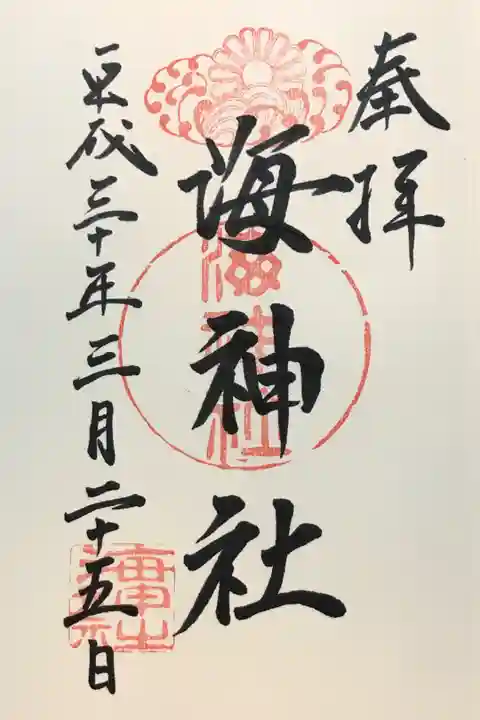 奉拝
海神社
平成三十年三月二十五日
海神社